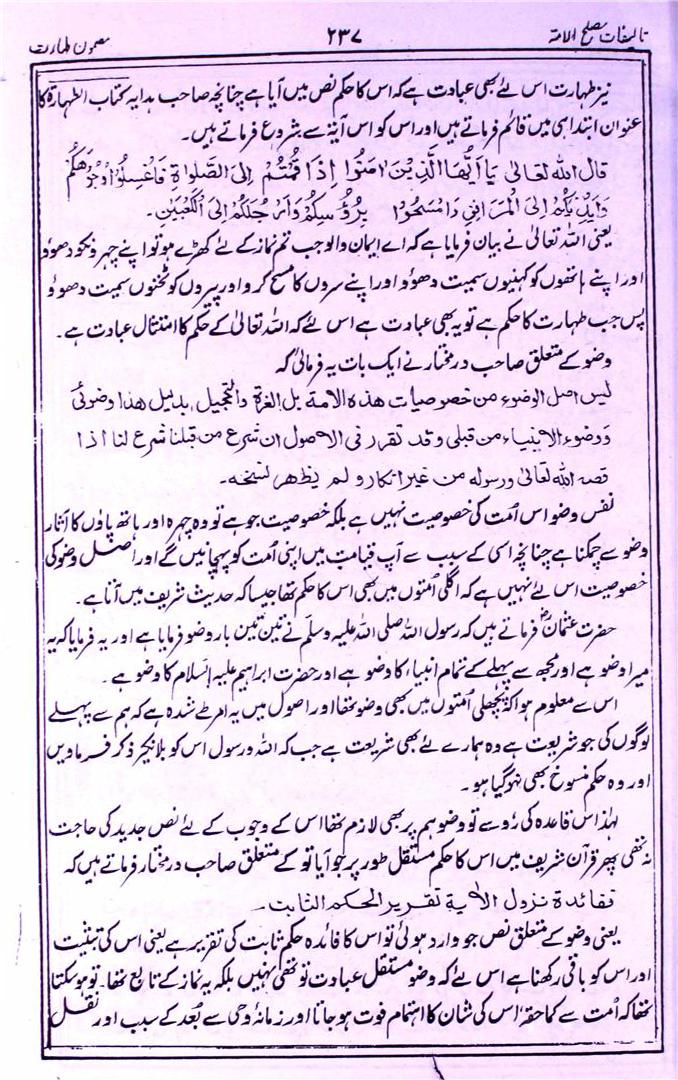 تالیفات مصلح الامۃ ۲۳۷ مضمون طہارت
نیز طہارت اس لئے بھی عبادت ہے کہ اس کا حکم نص میں آیا ہے چنانچہ صاحب ہدایہ کتاب الطہارۃ کا
عنوان ابتدا ہی میں قائم فرماتے ہیں اور اس کو اس آیۃ سے شروع فرماتے ہیں۔
قال اللہ تعالیٰ یَا اَیُّھَا الَّذِیْنَ اٰمَنُوا اِذَا قُمْتُمْ اِلَی الصَّلٰوۃِ فَاغْسِلُوْا وُجُوْھَکُمْ
وَاَیْدِیَکُمْ اِلَی الْمَرَافِقِ وَامْسَحُوْا بِرُؤُسِکُمْ وَاَرْجُلَکُمْ اِلَی الْکَعْبَیْنِ۔
یعنی اللہ تعالیٰ نے بیان فرمایا ہے کہ اے ایمان والو جب تم نماز کے لئے کھڑے ہو تو اپنے چہرونکو دھوؤ
اور اپنے ہاتھوں کو کہنیوں سمیت دھوؤ اور اپنے سروں کا مسح کرو اور پیروں کو ٹخنوں سمیت دھوؤ
پس جب طہارت کا حکم ہے تو یہ بھی عبادت ہے اس لئے کہ اللہ تعالیٰ کے حکم کا امتثال عبادت ہے۔
وضو کے متعلق صاحب درمختار نے ایک بات یہ فرمائی کہ
لیس اصل الوضوء من خصوصیات ھذہ الامۃ بل الغرۃ والتحجیل بدلیل ھذا وضوئی
ووضوء الانبیاء من قبلی وقد تقرر فی الاصول ان شرع من قبلنا شرع لنا اذا
قصہ اللہ تعالیٰ ورسولہ من غیر انکار و لم یظھر نسخہ۔
نفس وضو اس اُمت کی خصوصیت نہیں ہے بلکہ خصوصیت جو ہے تو وہ چہرہ اور ہاتھ پاؤں کا آثار
وضو سے چمکنا ہے چنانچہ اسی کے سبب سے آپ قیامت میں اپنی اُمت کو پہچانیں گے اور اصل وضو کی
خصوصیت اس لئے نہیں ہے کہ اگلی اُمتوں میں بھی اس کا حکم تھا جیسا کہ حدیث شریف میں آتا ہے۔
حضرت عثمانؓ فرماتے ہیں کہ رسول اللہ صلی اللہ علیہ وسلم نے تین تین بار وضو فرمایا ہے اور یہ فرمایا کہ یہ
میرا وضو ہے اور مجھ سے پہلے کے تمام انبیاء کا وضو ہے اور حضرت ابراہیم علیہ السلام کا وضو ہے۔
اس سے معلوم ہوا کہ پچھلی اُمتوں میں بھی وضو تھا اور اصول میں یہ امر طے شدہ ہے کہ ہم سے پہلے
لوگوں کی جو شریعت ہے وہ ہمارے لئے بھی شریعت ہے جب کہ اللہ ورسول اس کو بلانکیر ذکر فرماویں
اور وہ حکم منسوخ بھی نہوگیا ہو۔
لہٰذا اس قاعدہ کی رُو سے تو وضو ہم پر بھی لازم تھا اس کے وجوب کے لئے نص جدید کی حاجت
نہ تھی پھر قرآن شریف میں اس کا حکم مستقل طور پر جو آیا تو کے متعلق صاحب درمختار فرماتے ہیں کہ
ففائدۃ نزول الاٰیۃ تقریر الحکم الثابت۔
یعنی وضو کے متعلق نص جو وارد ہوئی تو اس کا فائدہ حکم ثابت کی تقریر ہے یعنی اس کی تثبیت
اور اس کو باقی رکھنا ہے اس لئے کہ وضو مستقل عبادت تو تھی نہیں بلکہ یہ نماز کے تابع تھا۔ تو ہوسکتا
تھا کہ اُمت سے کما حقہ اس کی شان کا اہتمام فوت ہو جاتا اور زمانۂ وحی سے بُعد کے سبب اور نقل